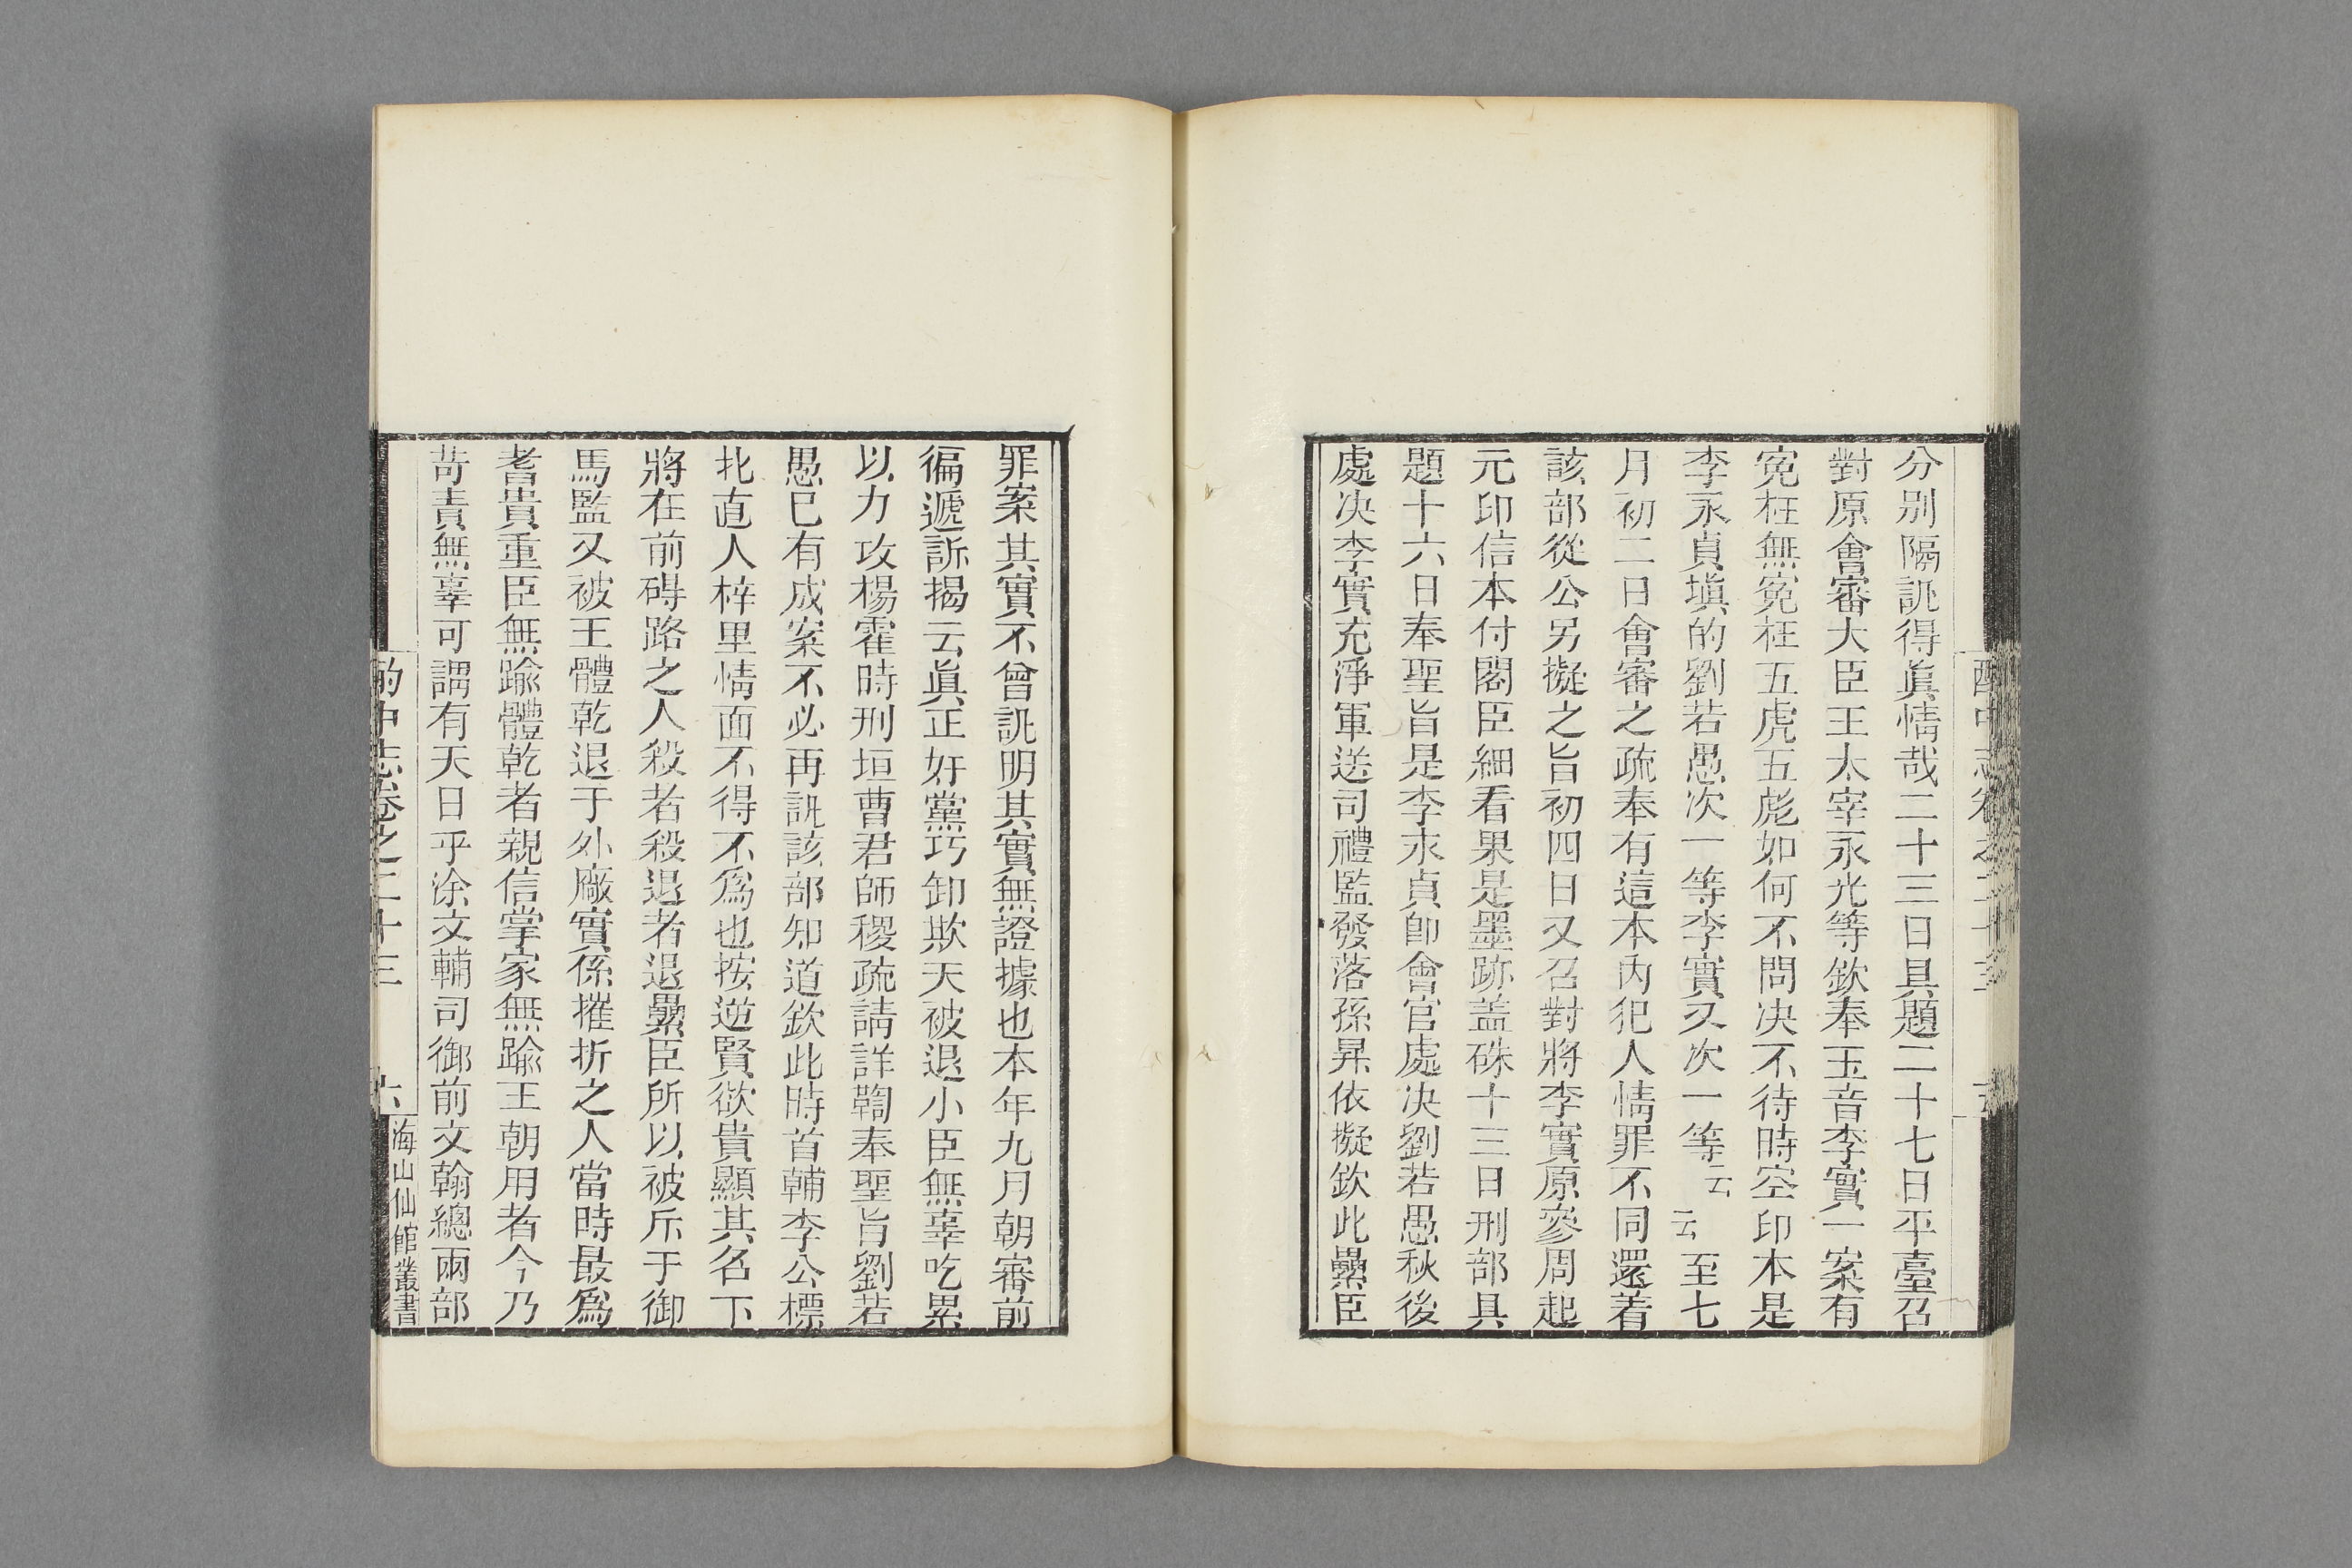 分別隔訊得眞情哉二十三日具題二十七日平臺召
對原會審大臣王太宰永光等欽奉玉音李實一案有
寃枉無寃枉五虎五彪如何不問决不待時空印本是
李永貞塡的劉若愚次一等李實又次一等云云至七
月初二日會審之疏奉有這本內犯人情罪不同還着
該部從公另擬之旨初四日又召對將李實原參周起
元印信本付閣臣細看果是墨跡盖硃十三日刑部具
題十六日奉聖旨是李永貞卽會官處决劉若愚秋後
處决李實充淨軍送司禮監發落孫昇依擬欽此纍臣
罪案其實不曾訊明其實無證據也本年九月朝審前
徧遞訴揭云眞正奸黨巧卸欺天被退小臣無辜吃累
以力攻楊霍時刑垣曹君師稷疏請詳鞫奉聖旨劉若
愚已有成案不必再訊該部知道欽此時首輔李公標
北直人梓里情面不得不爲也按逆賢欲貴顯其名下
將在前碍路之人殺者殺退者退纍臣所以被斥于御
馬監又被王體乾退于外廠實係摧折之人當時最爲
耆貴重臣無踰體乾者親信掌家無踰王朝用者今乃
苛責無辜可謂有天日乎涂文輔司御前文翰總兩部
酌中志卷之二十三
六
海山仙館叢書